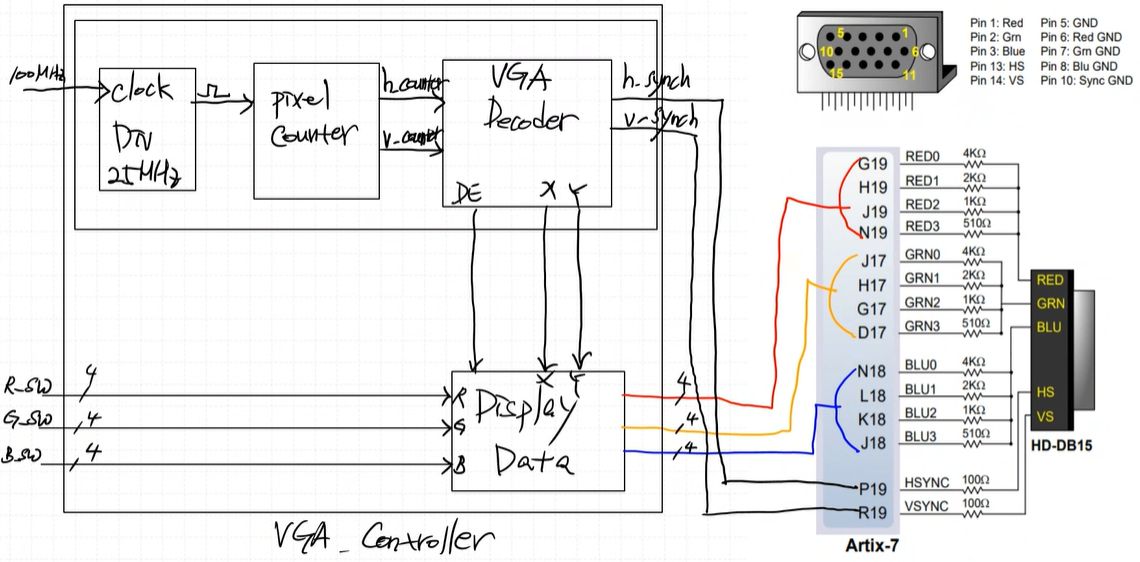 100MHz
clock
DIV
25MHz
pixel
counter
h_counter
v_counter
VGA
Decoder
DE X Y
h_synch
v_synch
R_SW 4
G_SW 4
B_SW 4
X Y
R Display
G
B Data
4
4
4
VGA_Controller
5 1
10 6
15 11
Pin 1: Red Pin 5: GND
Pin 2: Grn Pin 6: Red GND
Pin 3: Blue Pin 7: Grn GND
Pin 13: HS Pin 8: Blu GND
Pin 14: VS Pin 10: Sync GND
G19 RED0 4KΩ
H19 RED1 2KΩ
J19 RED2 1KΩ
N19 RED3 510Ω
J17 GRN0 4KΩ
H17 GRN1 2KΩ
G17 GRN2 1KΩ
D17 GRN3 510Ω
N18 BLU0 4KΩ
L18 BLU1 2KΩ
K18 BLU2 1KΩ
J18 BLU3 510Ω
P19 HSYNC 100Ω
R19 VSYNC 100Ω
Artix-7
RED
GRN
BLU
HS
VS
HD-DB15